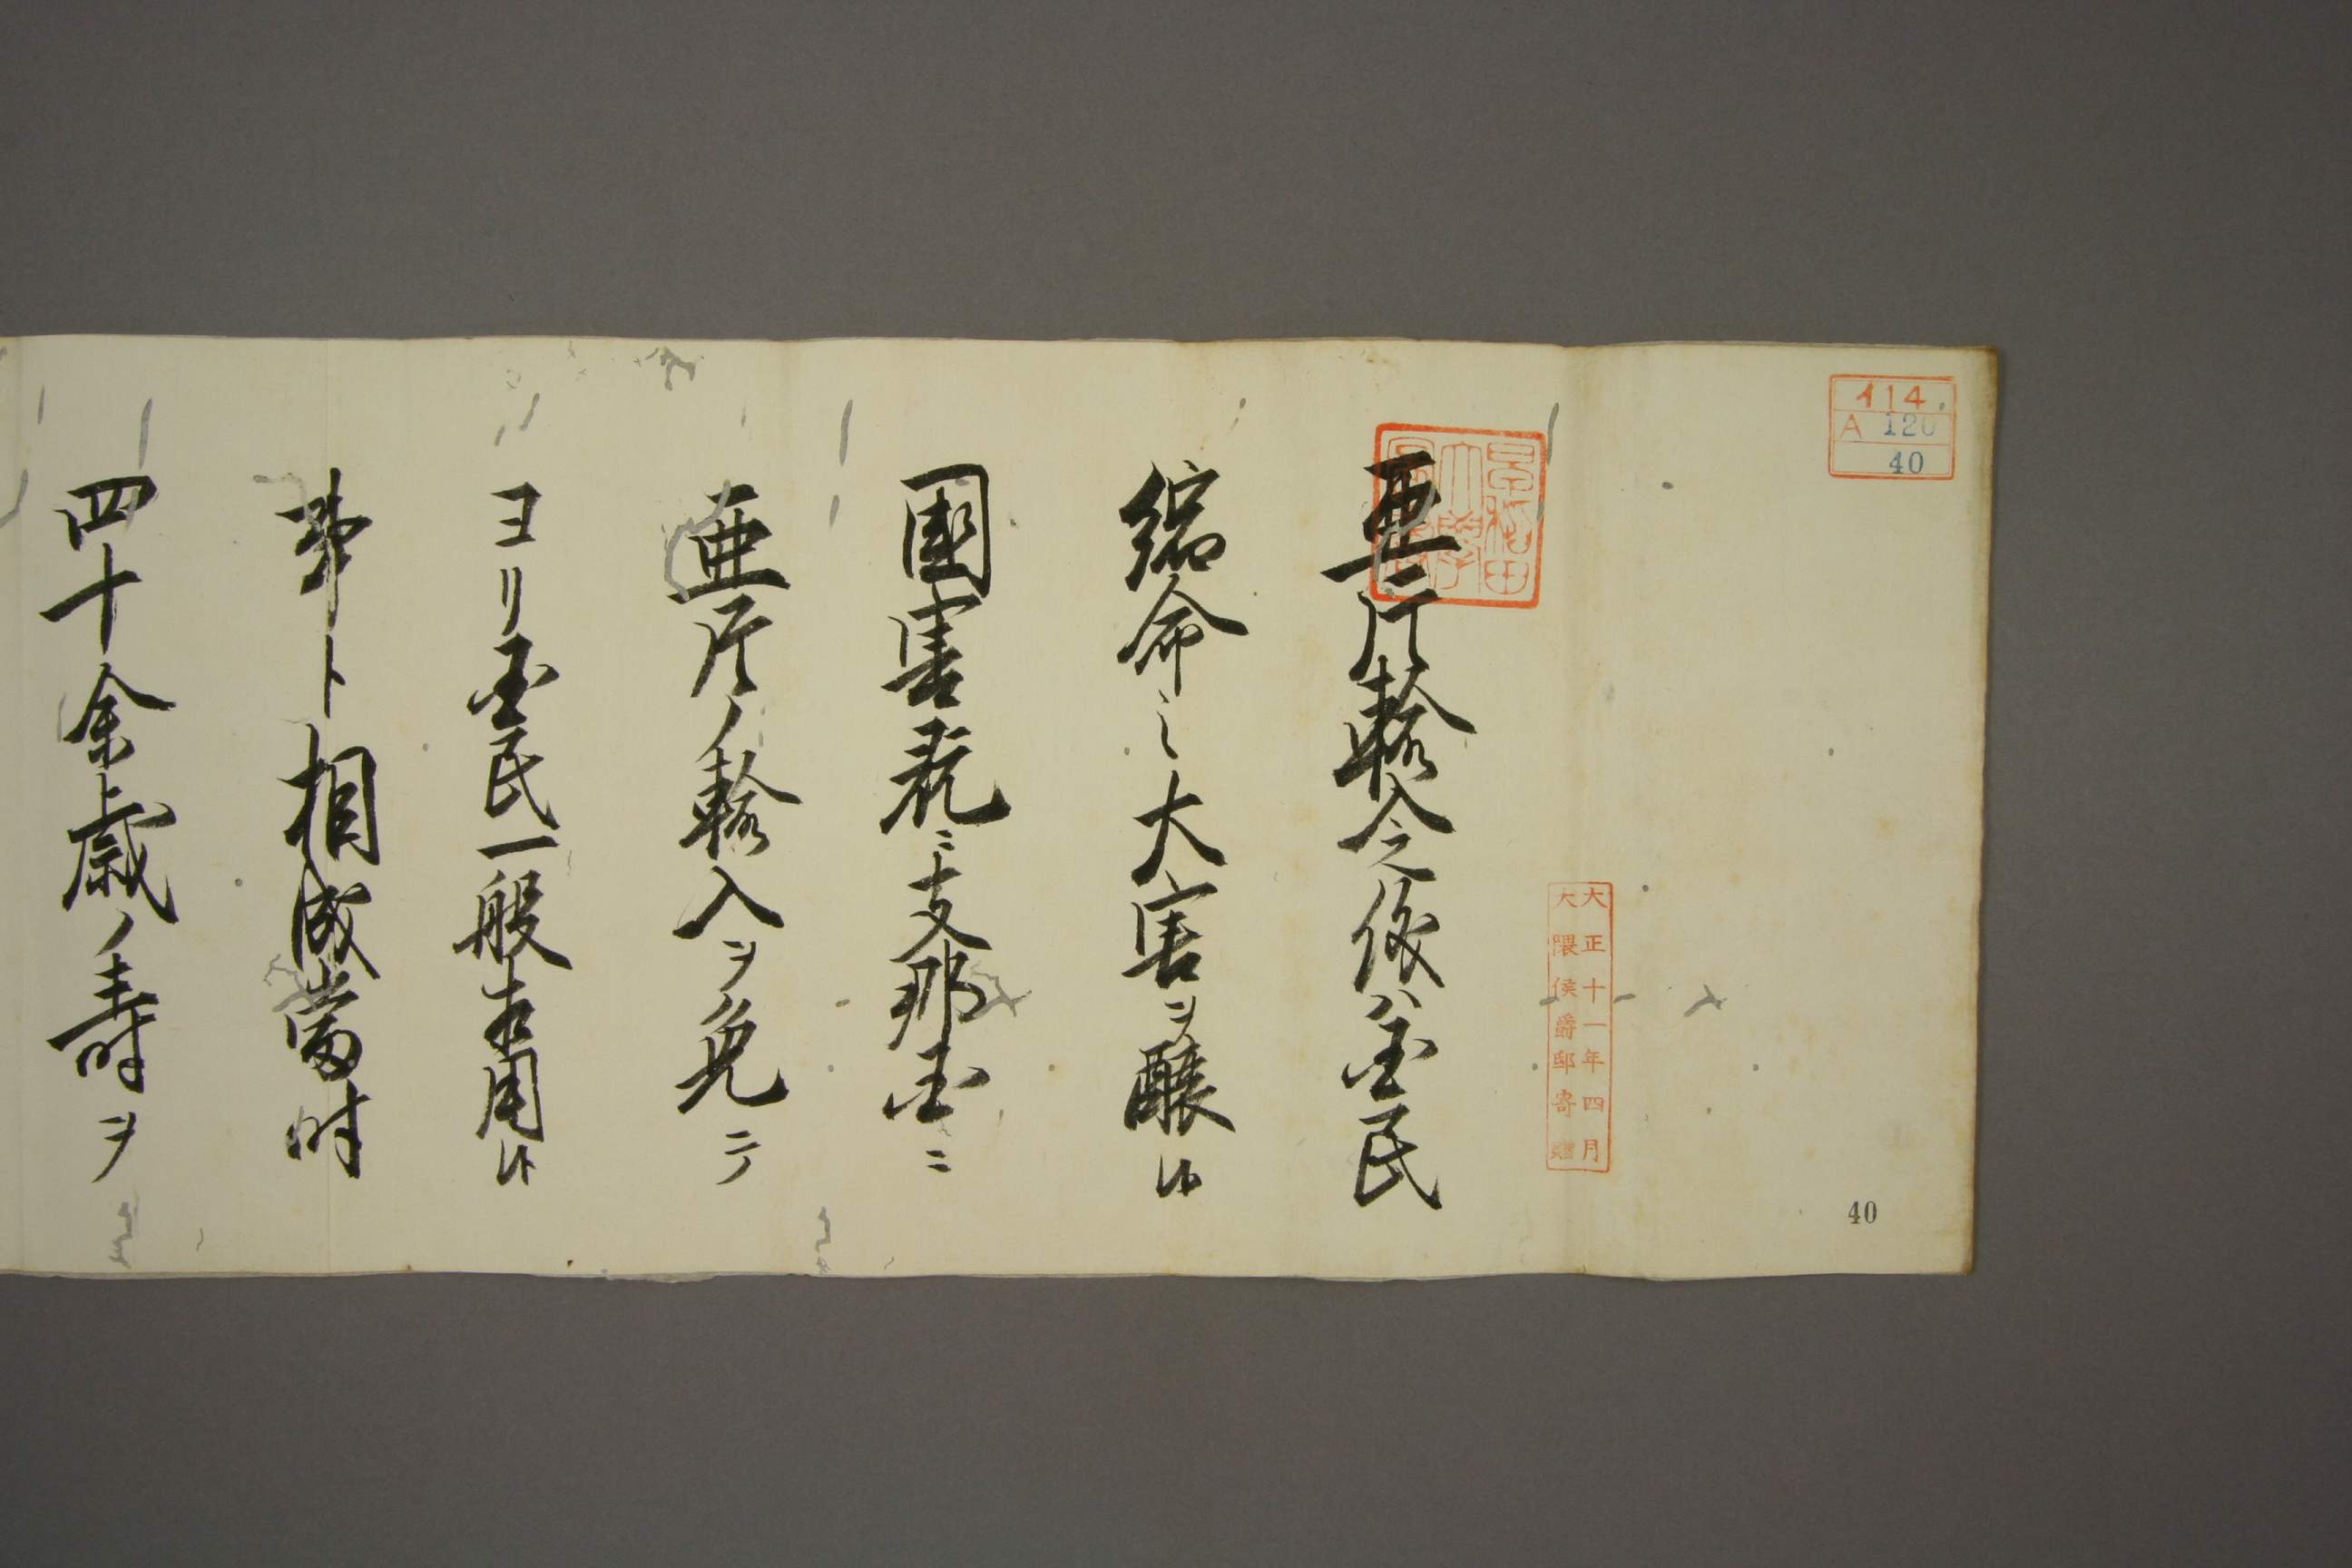 イ14
A 120
40
早稲田
大學
大正十一年四月
大隈侯爵邸寄贈
40
亜片輸入之儀ハ国民
縮命之大害ヲ醸シ候
國害
ニ支那国ニ
亜片ノ輸入ヲ免ニテ
ヨリ国民一般相用候
弊ト相成當時
四十余歳ノ寿ヲ